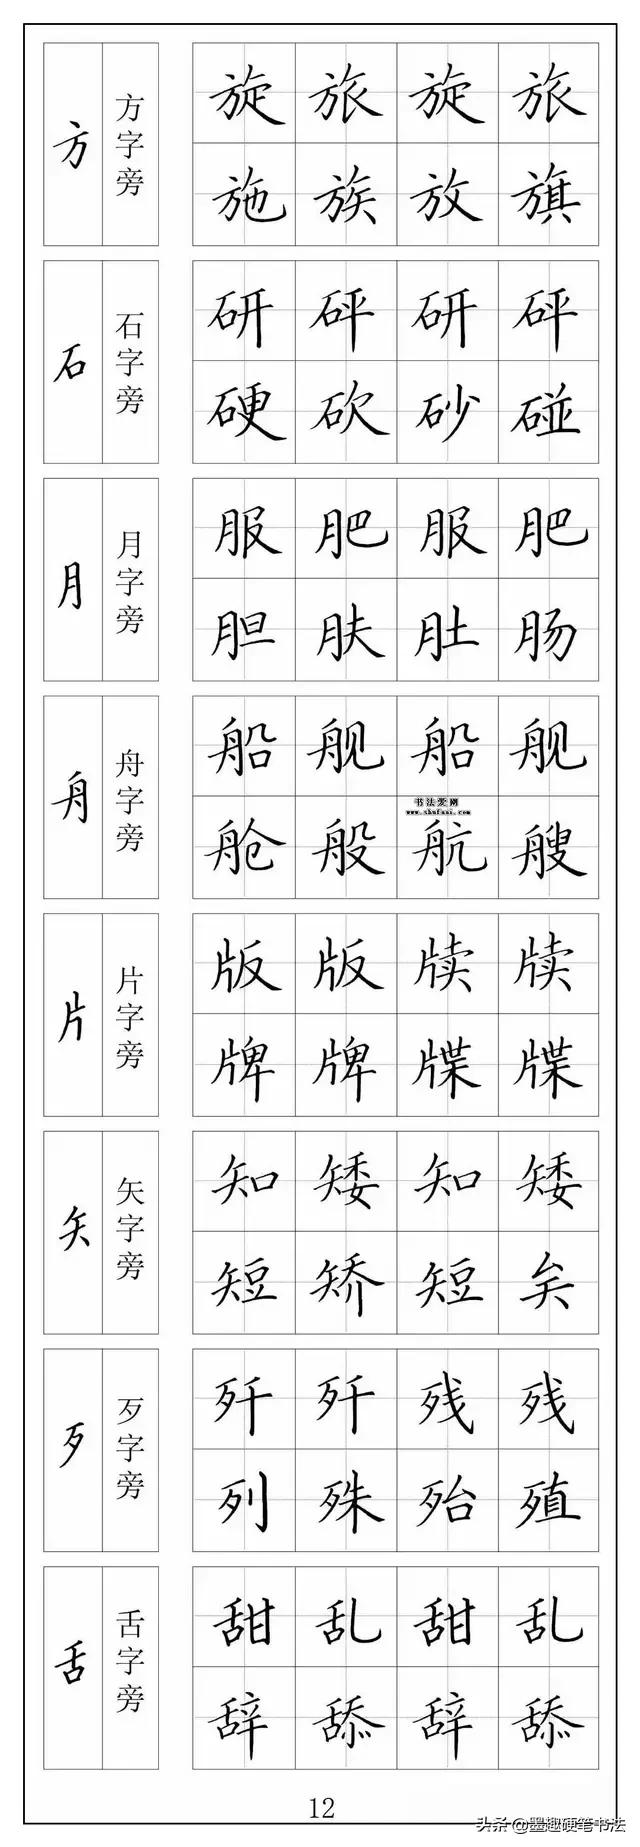 方 方字旁
旋 旅 旋 旅
施 族 放 旗
石 石字旁
研 砰 研 砰
硬 砍 砂 碰
月 月字旁
服 肥 服 肥
胆 肤 肚 肠
舟 舟字旁
船 舰 船 舰
书法爱刚
www.shufami.com
舱 般 航 艘
片 片字旁
版 版 牍 牍
牌 牌 牒 牒
矢 矢字旁
知 矮 知 矮
短 矫 短 矣
歹 歹字旁
歼 歼 残 残
列 殊 殆 殖
舌 舌字旁
甜 乱 甜 乱
辞 舔 辞 舔
12
头条@墨趣硬笔书法